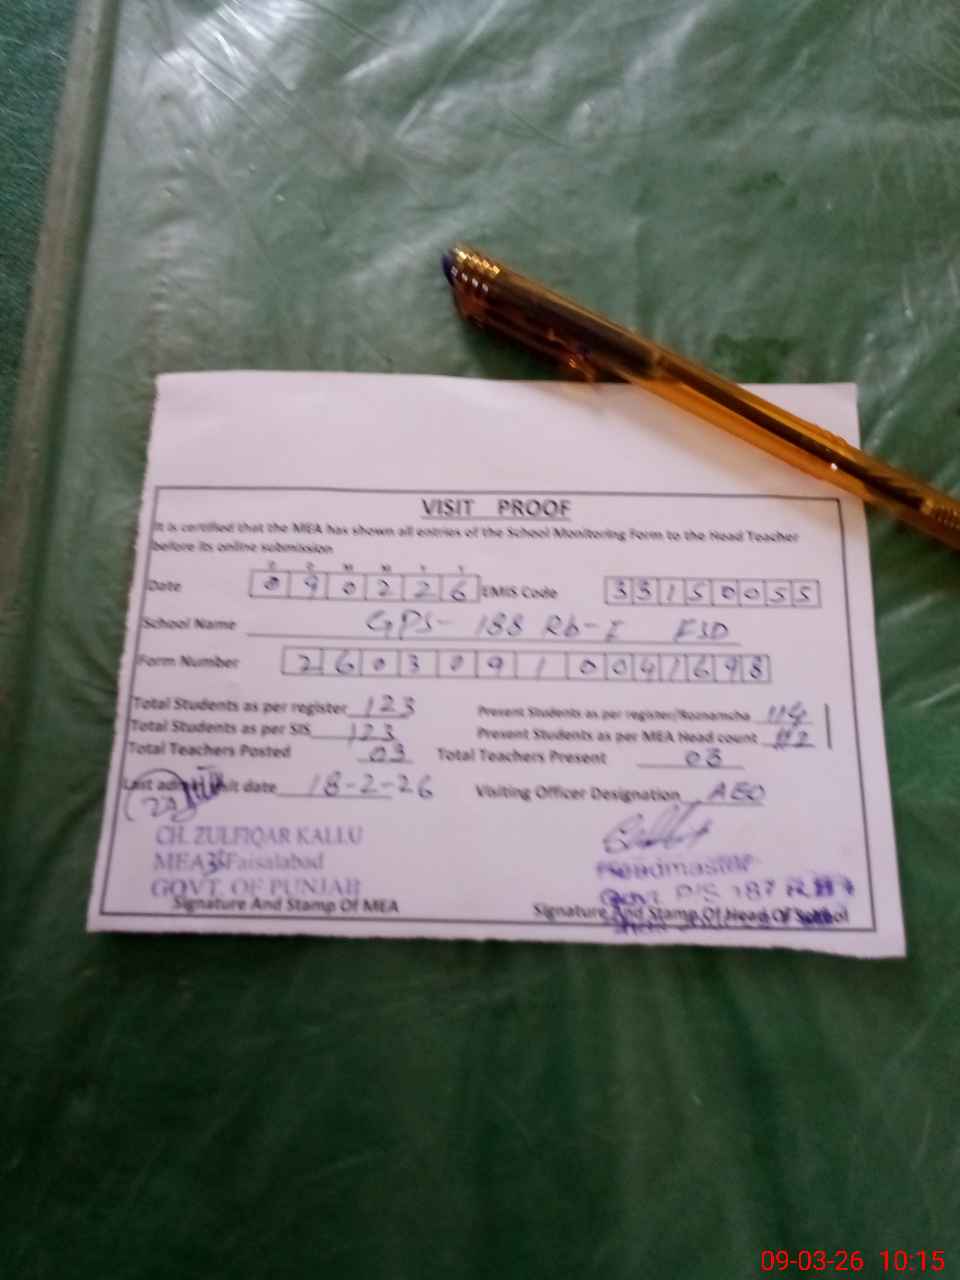 VISIT PROOF
It is certified that the MEA has shown all entries of the School Monitoring Form to the Head Teacher
before its online submission
D D M M Y Y
Date 0 9 0 2 2 6 EMIS Code 3 3 1 5 0 0 5 5
School Name GPS- 188 Rb-I FSD
Form Number 2 6 0 3 0 9 1 0 0 4 1 6 9 8
Total Students as per register 123 Present Students as per register/Roznamcha 114
Total Students as per SIS 123 Present Students as per MEA Head count 112
Total Teachers Posted 03 Total Teachers Present 03
Last admin visit date 18-2-26 Visiting Officer Designation AEO
CH. ZULFIQAR KALLU
MEA Faisalabad
GOVT. OF PUNJAB
Signature And Stamp Of MEA
Headmaster
Govt P/S 187 R.B
Signature And Stamp Of Head Of School
09-03-26 10:15